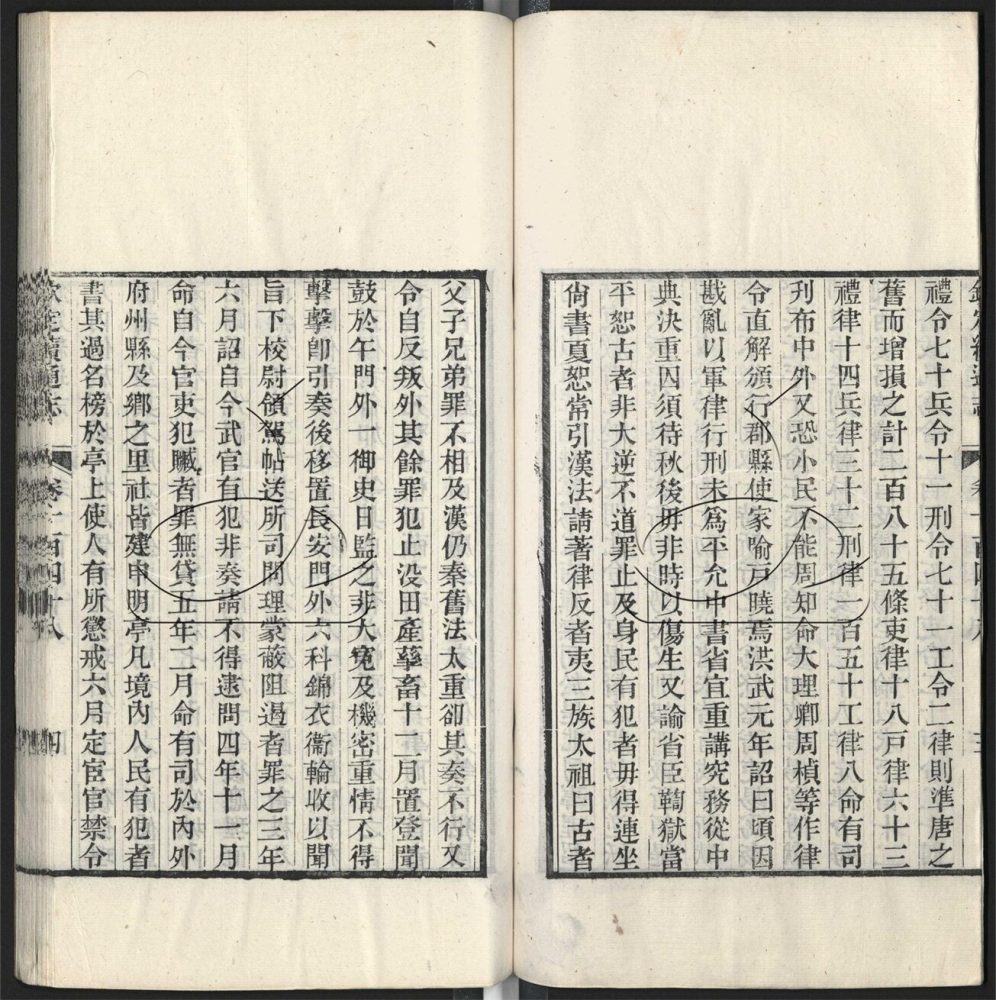 禮令七十兵令十一刑令七十一工令二律則準唐之
舊而增損之計二百八十五條吏律十八戸律六十三
禮律十四兵律三十二刑律一百五十工律八命有司
刋布中外又恐小民不能周知命大理卿周楨等作律
令直解頒行郡縣使家喻戸曉焉洪武元年詔曰頃因
戡亂以軍律行刑未爲平允中書省宜重講究務從中
典決重囚須待秋後毋非時以傷生又諭省臣鞫獄當
平恕古者非大逆不道罪止及身民有犯者毋得連坐
尙書夏恕嘗引漢法請著律反者夷三族太祖曰古者
父子兄弟罪不相及漢仍秦舊法太重卻其奏不行又
令自反叛外其餘罪犯止没田產孳畜十二月置登聞
鼓於午門外一御史日監之非大寃及機密重情不得
擊擊卽引奏後移置長安門外六科錦衣衞輪收以聞
旨下校尉領駕帖送所司問理蒙蔽阻遏者罪之三年
六月詔自今武官有犯非奏請不得逮問四年十一月
命自今官吏犯贓者罪無貸五年二月命有司於內外
府州縣及鄉之里社皆建申明亭凡境內人民有犯者
書其過名榜於亭上使人有所懲戒六月定宦官禁令
欽定續通志 卷一百四十八 四